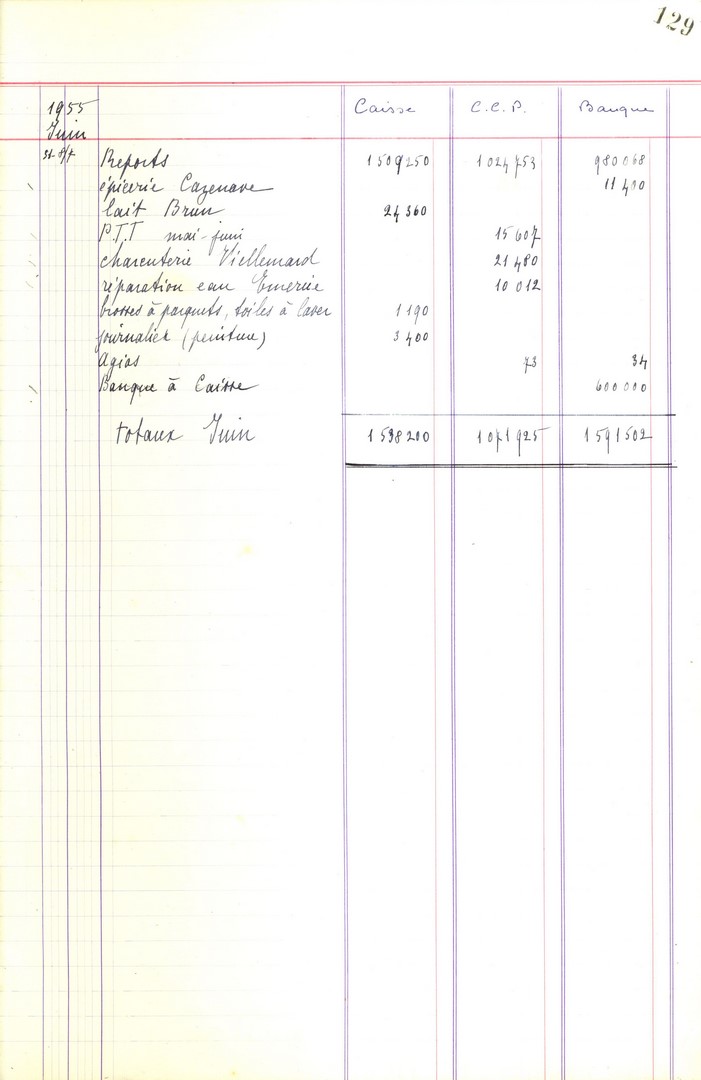 129
1955 Caisse C.C.P. Banque
Juin
Reports 1 509 250 1 024 753 980 068
épicerie Cazenave 11 400
lait Brun 24 360
P.T.T mai-juin 15 607
charcuterie Viellemard 21 480
réparation eau Emerie 10 012
brosses à parquets, toiles à laver 1 190
journalier (peinture) 3 400
Agios 73 34
Banque à Caisse 600 000
totaux Juin 1 538 200 1 071 925 1 591 502